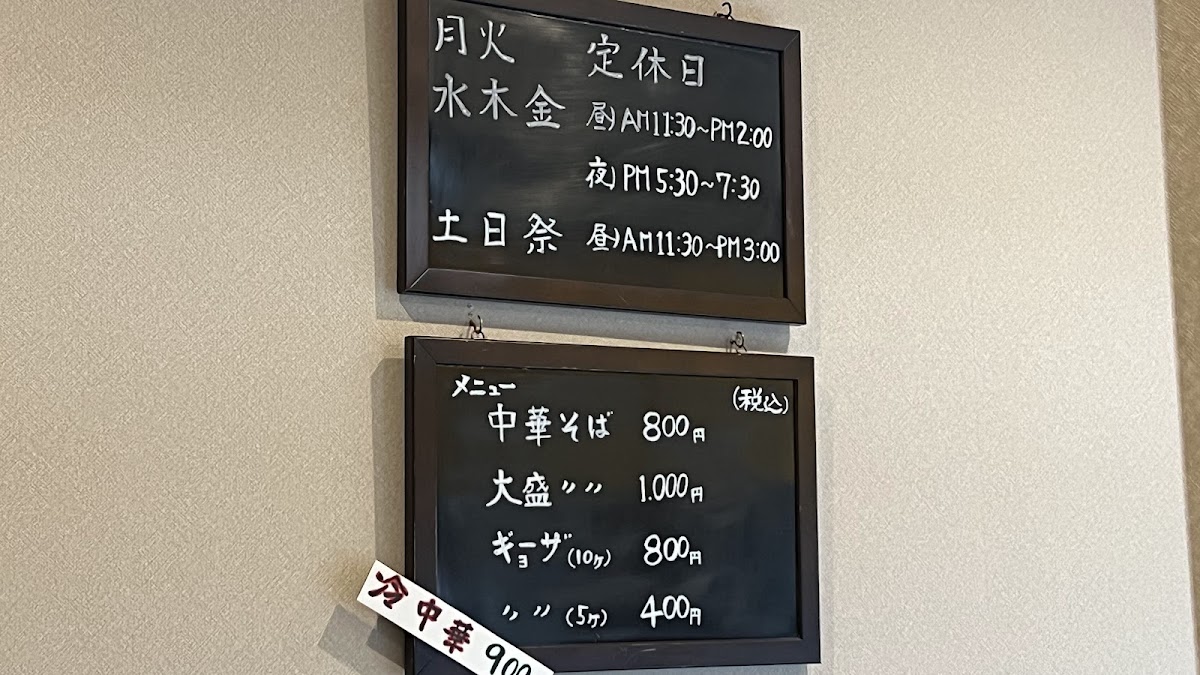 月火 定休日
水木金 昼)AM11:30~PM2:00
夜)PM5:30~7:30
土日祭 昼)AM11:30~PM3:00
メニュー (税込)
中華そば 800円
大盛〃〃 1.000円
ギョーザ(10ヶ) 800円
〃〃(5ヶ) 400円
冷中華 900